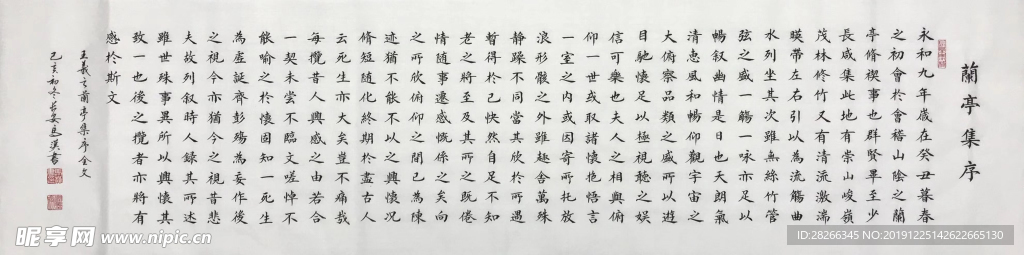 蘭亭集序
永和九年歲在癸丑暮春
之初會於會稽山陰之蘭
亭脩禊事也群賢畢至少
長咸集此地有崇山峻嶺
茂林修竹又有清流激湍
暎帶左右引以為流觴曲
水列坐其次雖無絲竹管
弦之盛一觴一詠亦足以
暢叙幽情是日也天朗氣
清惠風和暢仰觀宇宙之
大俯察品類之盛所以遊
目騁懷足以極視聽之娛
信可樂也夫人之相與俯
仰一世或取諸懷抱悟言
一室之内或因寄所托放
浪形骸之外雖趣舍萬殊
静躁不同當其欣於所遇
暫得於己快然自足不知
老之將至及其所之既倦
情隨事遷感慨係之矣向
之所欣俯仰之間已為陳
迹猶不能不以之興懷况
脩短随化終期於盡古人
云死生亦大矣豈不痛哉
每攬昔人興感之由若合
一契未嘗不臨文嗟悼不
能喻之於懷固知一死生
為虛誕齊彭殤為妄作後
之視今亦猶今之視昔悲
夫故列叙時人録其所述
雖世殊事異所以興懷其
致一也後之攬者亦將有
感於斯文
王羲之蘭亭集序全文
己亥初冬
昵享网 www.nipic.cn
ID:28266345 NO:20191225142622665130